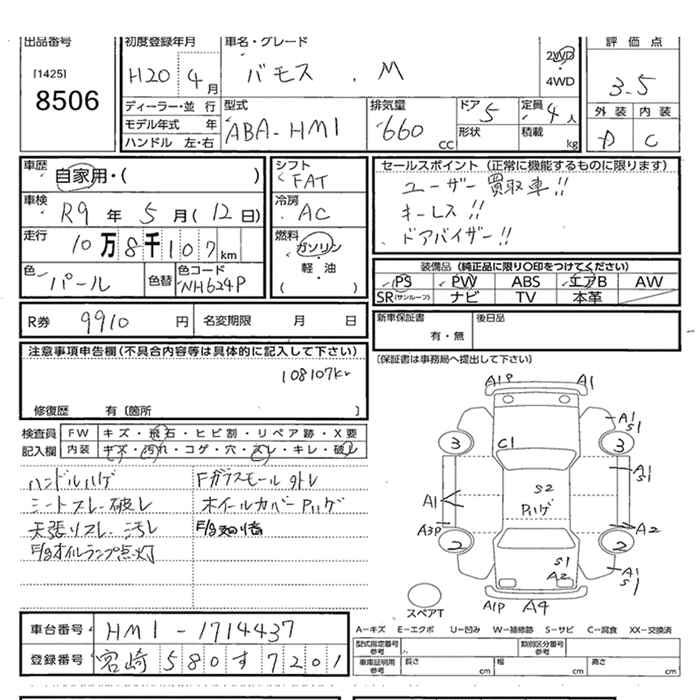 出品番号
[1425]
8506
初度登録年月
H20 4月
車名・グレード
バモス . M
2WD
4WD
評価点
3.5
外装 内装
D C
ディーラー・並行
モデル年式 年
ハンドル 左・右
型式
ABA-HM1
排気量
660 cc
ドア 5
形状
定員 4人
積載 kg
車歴
自家用・( )
車検
R9年5月(12日)
走行
10万8千107km
色
パール
色替
色コード
NH624P
シフト
FAT
冷房
AC
燃料
ガソリン
軽・油
( )
セールスポイント(正常に機能するものに限ります)
ユーザー買取車!!
キーレス!!
ドアバイザー!!
装備品(純正品に限り○印をつけてください)
PS PW ABS エアB AW
SR(サンルーフ) ナビ TV 本革
R券 9910円
名変期限 月 日
新車保証書
有・無
後日品
(保証書は事務局へ提出して下さい)
注意事項申告欄(不具合内容等は具体的に記入して下さい)
108107K
修復歴 有〔箇所 〕
検査員
記入欄
FW キズ・飛石・ヒビ割・リペア跡・X要
内装 キズ・汚れ・コゲ・穴・スレ・キレ・破レ
ハンドルハゲ
シートスレ・破レ
天張りスレ・汚レ
E/gオイルランプ点灯
Fガラスモール外レ
ホイールカバーPハゲ
A1P A1
A1
S1
3 3
C1
A1
S1
S2
Pハゲ
A1
A3P A2
2 2
S1
A2
A1
S1
スペアT
A1P A4
A-キズ E-エクボ U-凹み W-補修跡 S-サビ C-腐食 XX-交換済
車台番号 HM1-1714437
登録番号 宮崎580す7201
型式指定番号
参考
類別区分番号
参考
車庫証明用
参考
長さ cm
幅 cm
高さ cm